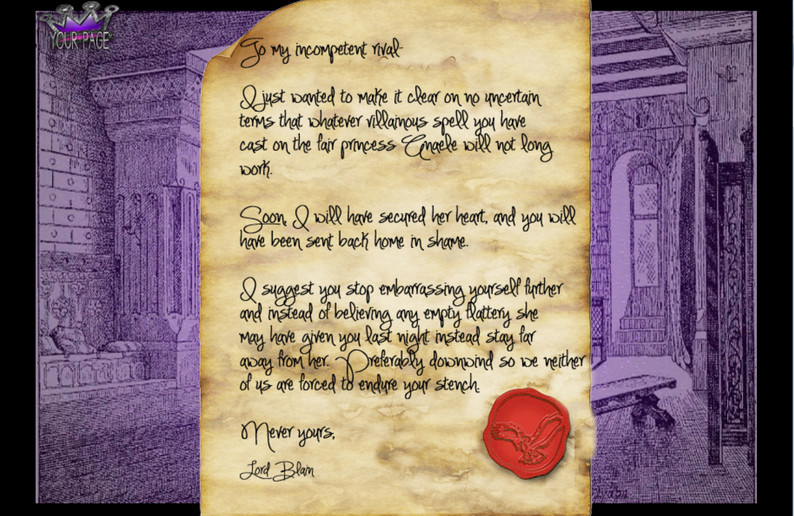 YOUR PAGE
To my incompetent rival-
I just wanted to make it clear on no uncertain
terms that whatever villainous spell you have
cast on the fair princess Anaele will not long
work.
Soon, I will have secured her heart, and you will
have been sent back home in shame.
I suggest you stop embarrassing yourself further
and instead of believing any empty flattery she
may have given you last night instead stay far
away from her. Preferably downwind so we neither
of us are forced to endure your stench.
Never yours,
Lord Blain